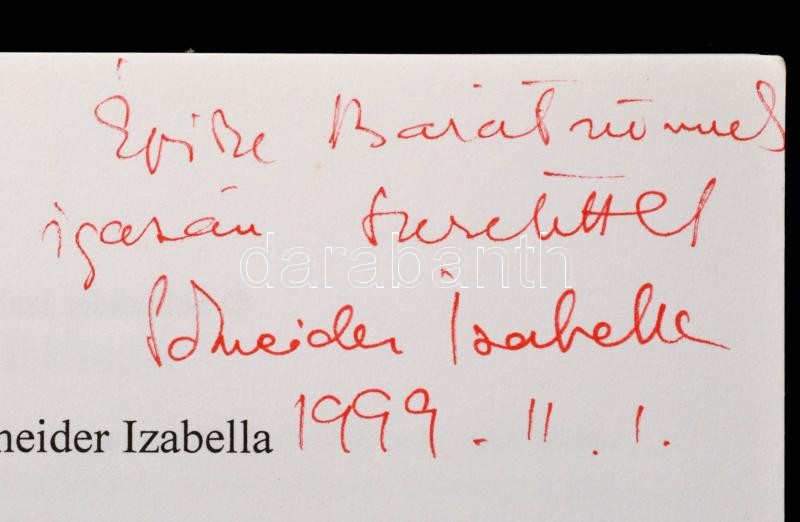 Épike Barátnőmnek
igazán szeretettel
darabanth
Schneider Izabella
neider Izabella 1999. II. 1.